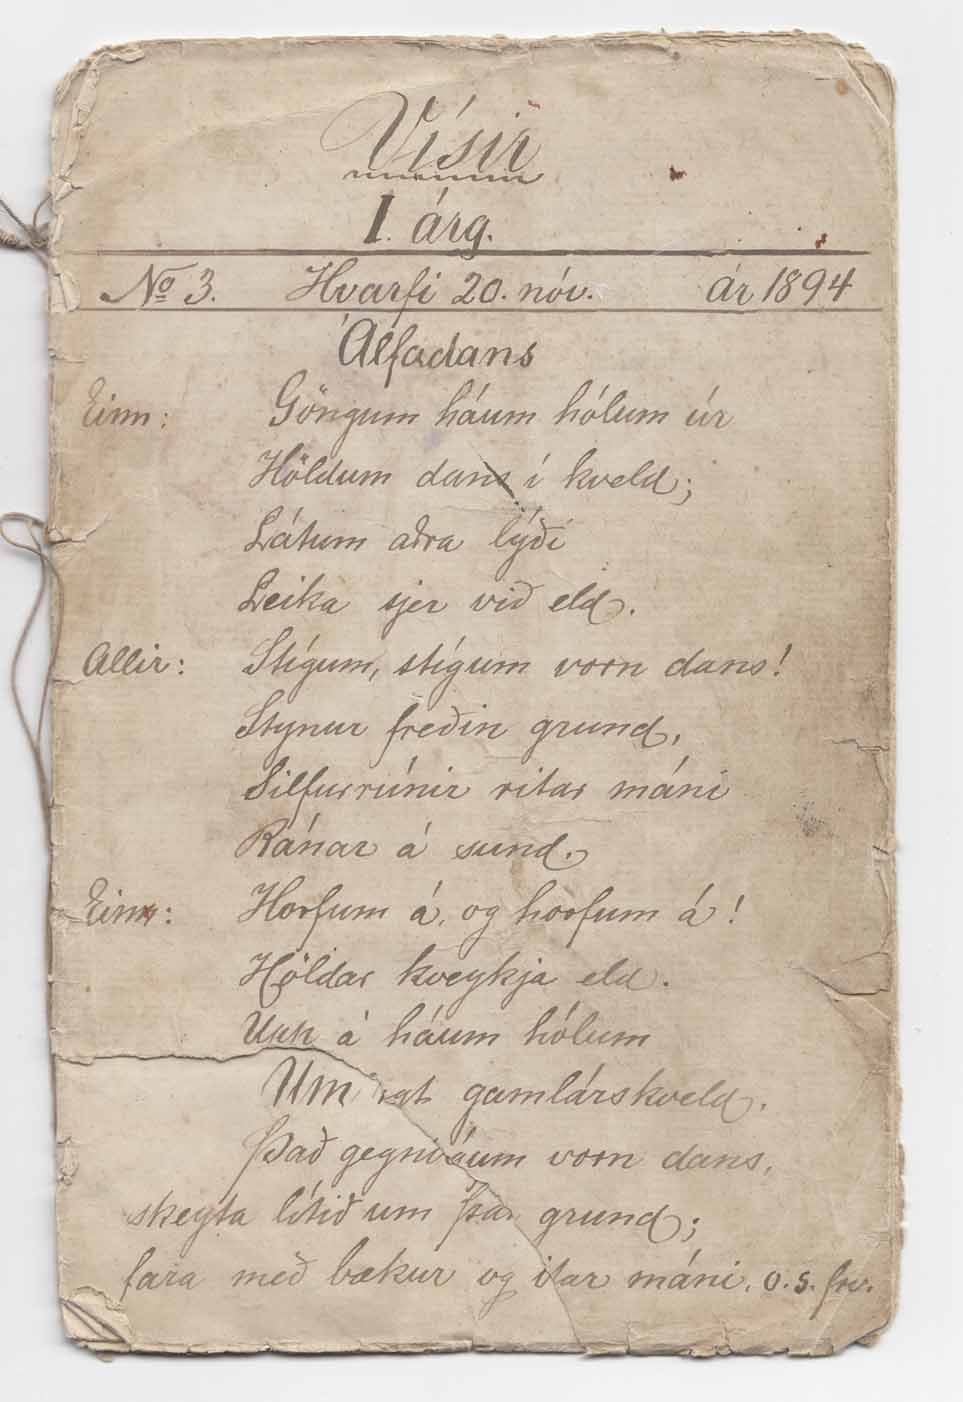 Vísir
I. árg.
No 3. Hvarfi 20. nóv. ár 1894
Álfadans
Einn: Göngum háum hólum úr
Höldum dans í kveld;
Látum aðra lýði
Leika sjer við eld.
Allir: Stígum, stígum vorn dans!
Stynur freðin grund,
Silfurrúnir ritar máni
Ránar á sund.
Einn: Horfum á, og horfum á!
Höldar kveykja eld.
Upp á háum hólum
Um gamlárskveld.
Það vorn dans,
skeyta lítið um grund;
fara með bækur og itar máni, o.s.frv.